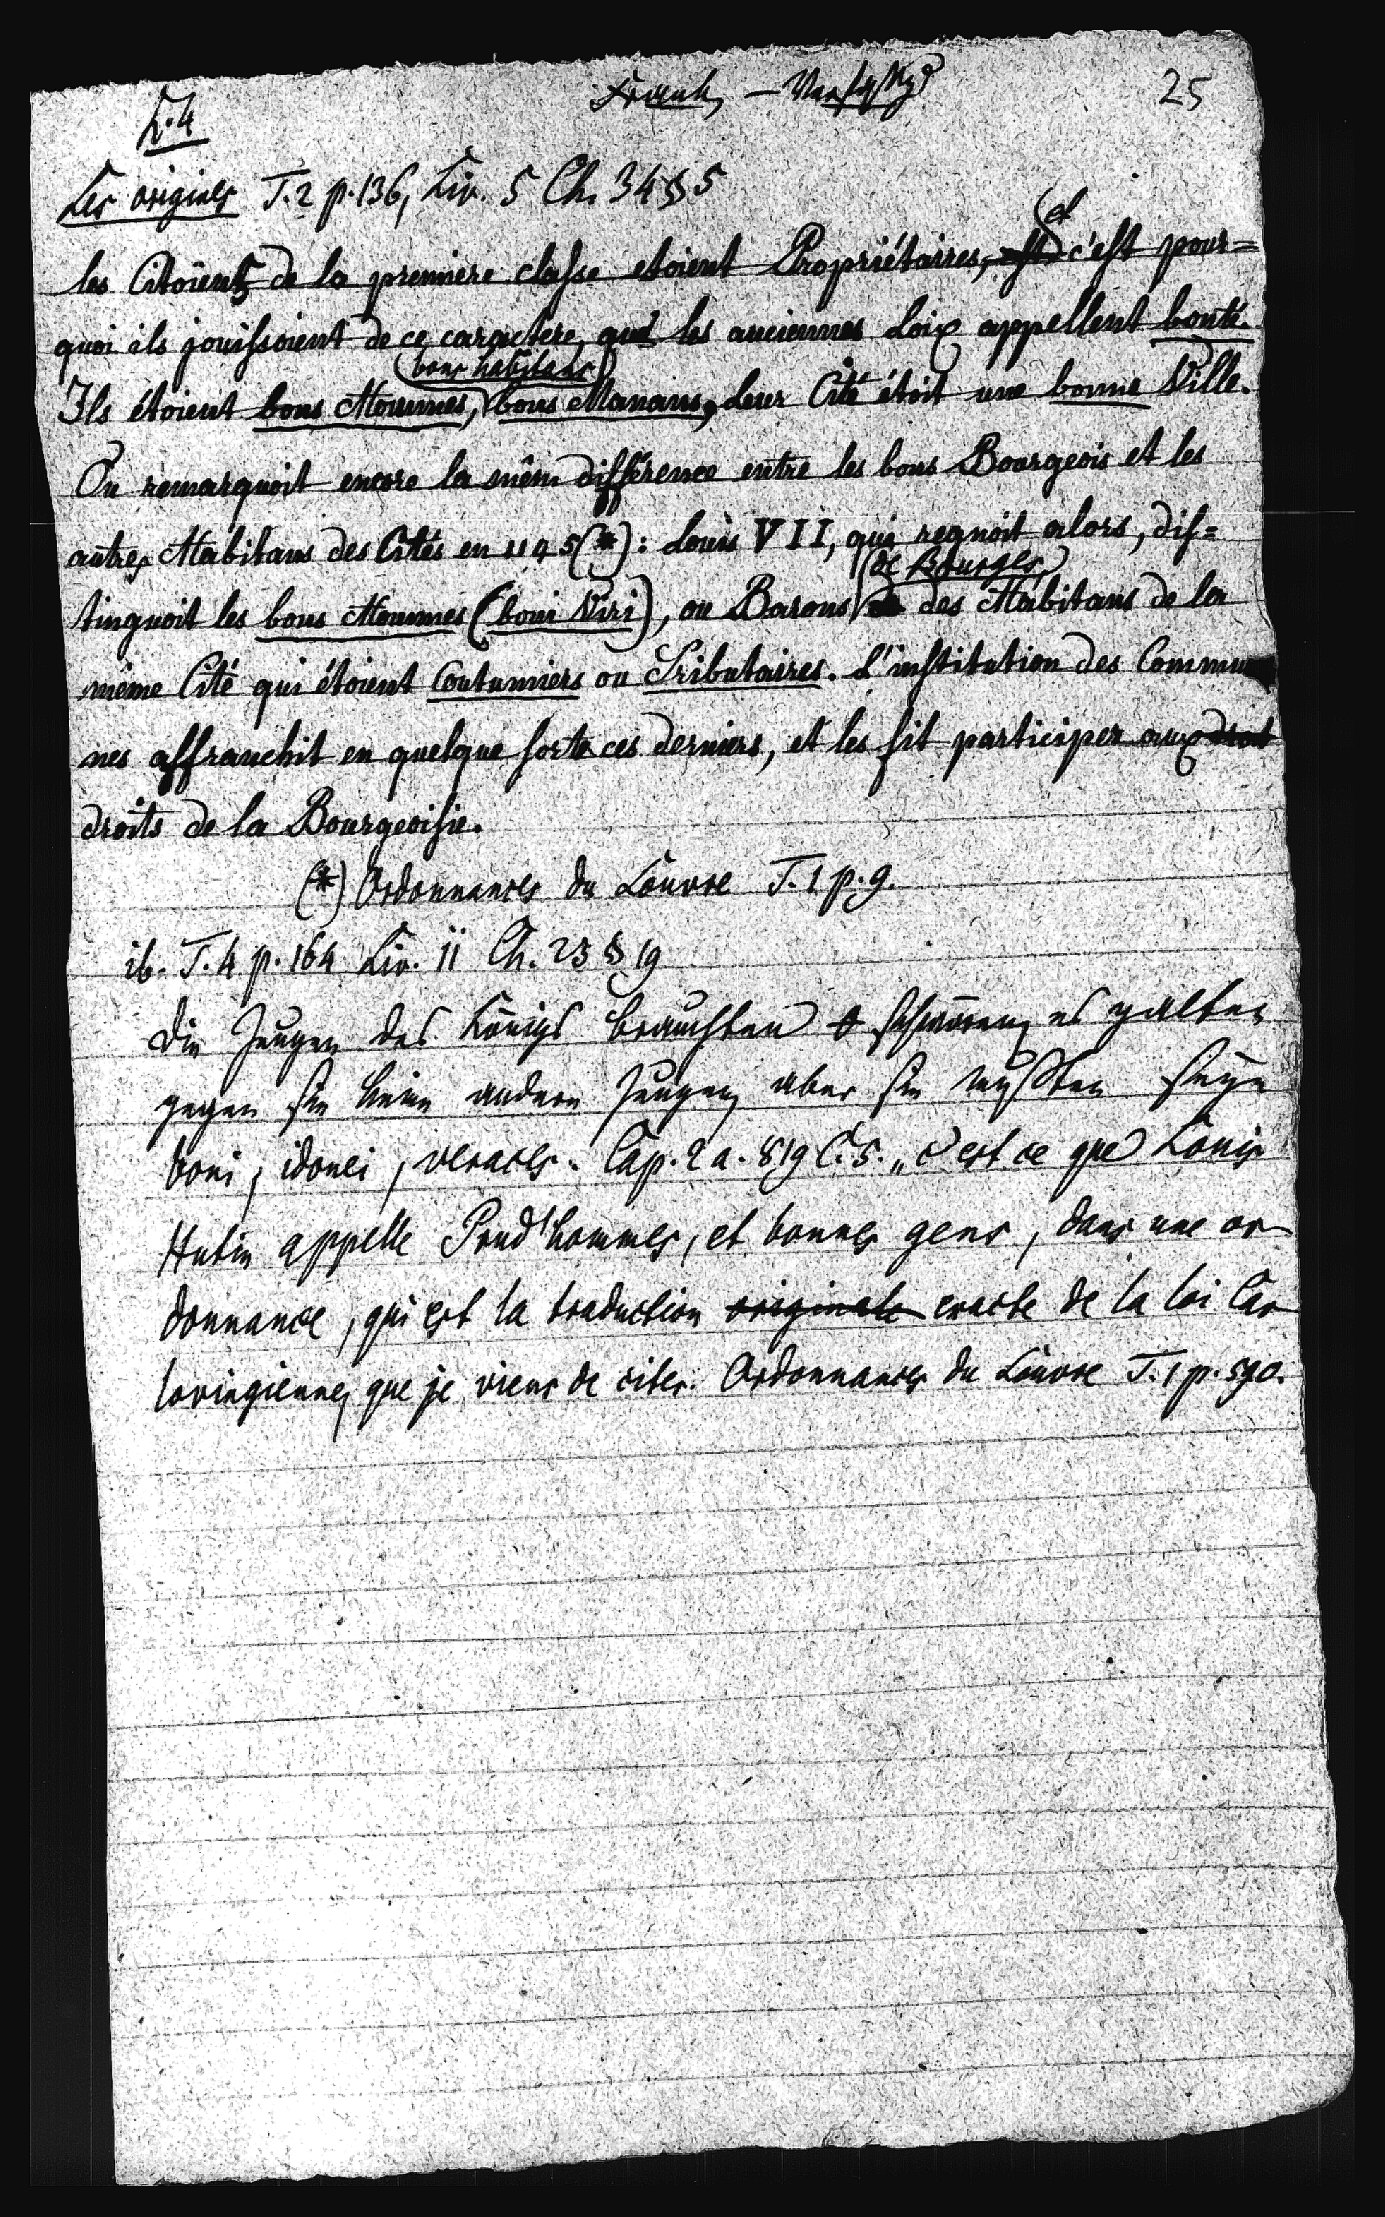 Frank – 25
L. 4
Les origines T. 2 p. 136, Liv. 5 Ch. 34 § 5
les Citoïens de la premiere classe etoient Propriétaires, et c'est pour=
quoi ils jouissoient de ce caractere, que les anciennes Loix appellent bonté.
Ils étoient bons Hommes, bons habitans, bons Manans, Leur Cité étoit une bonne Ville.
On remarquoit encore la mêm différence entre les bons Bourgeois et les
autres Habitans des Cités en 1145 (*): Louis VII, qui regnoit alors, dis=
tinguoit les bons Hommes (boni Viri), ou Barons de Bourges, des Habitans de la
même Cité qui étoient Coutumiers ou Tributaires. L'institution des Commu
nes affranchit en quelque sorte ces derniers, et les fit participer aux droit
droits de la Bourgeoisie.
(*) Ordonnances du Louvre T. 1 p. 9.
ib. T. 4 p. 164 Liv. 11 Ch. 23 § 19
Die Zeugen des Königs brauchten schwören, es galten
gegen sie keine andern Zeugen, aber sie mußten seyn
boni, idonei, veraces. Cap. 2 a. 819 C. 5. „c'est ce que Louis
Hutin appelle Prud'hommes, et bonnes gens, dans une or
donnance, qui est la traduction originale exacte de la loi Car
lovingienne, que je viens de citer. Ordonnances du Louvre T. 1 p. 590.